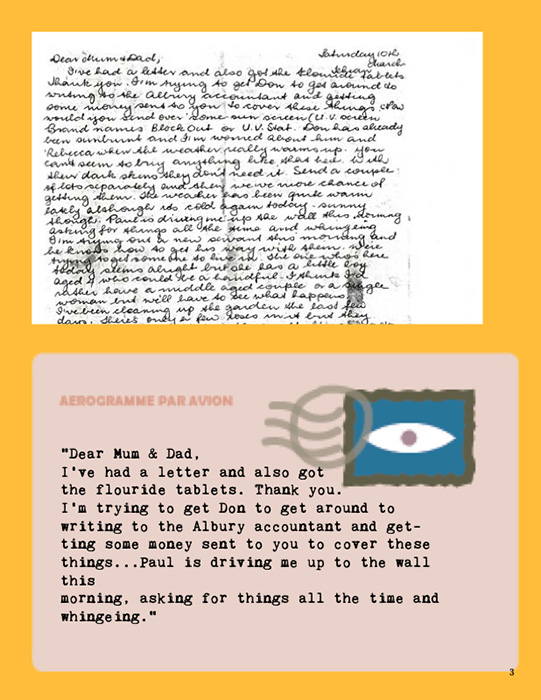 Saturday 10th
March
Dear Mum & Dad,
I've had a letter and also got the flouride tablets
thank you. I'm trying to get Don to get around to
writing to the Albury accountant and getting
some money sent to you to cover these things
would you send over some sun screen (U.V. screen
Brand names Block Out or U.V. Stat. Don has already
been sunburnt and I'm worried about him and
Rebecca when the weather really warms up. you
can't seem to buy anything like that here. with
their dark skins they don't need it. Send a couple
of lots separately and then we've more chance of
getting them. The weather has been quite warm
lately although its cold again today - sunny
though. Paul is driving me up the wall this morning
asking for things all the time and whingeing
I'm trying out a new servant this morning and
he knows how to get his way with them. We're
trying to get someone to live in. The one who's here
today seems alright but she has a little boy
aged 4 who could be a handful. I think I'd
rather have a middle aged couple or a single
woman but we'll have to see what happens.
I've been cleaning up the garden the last few
days. There's only a few roses in it but they
AEROGRAMME PAR AVION
"Dear Mum & Dad,
I've had a letter and also got
the flouride tablets. Thank you.
I'm trying to get Don to get around to
writing to the Albury accountant and get-
ting some money sent to you to cover these
things...Paul is driving me up to the wall
this
morning, asking for things all the time and
whingeing."
3